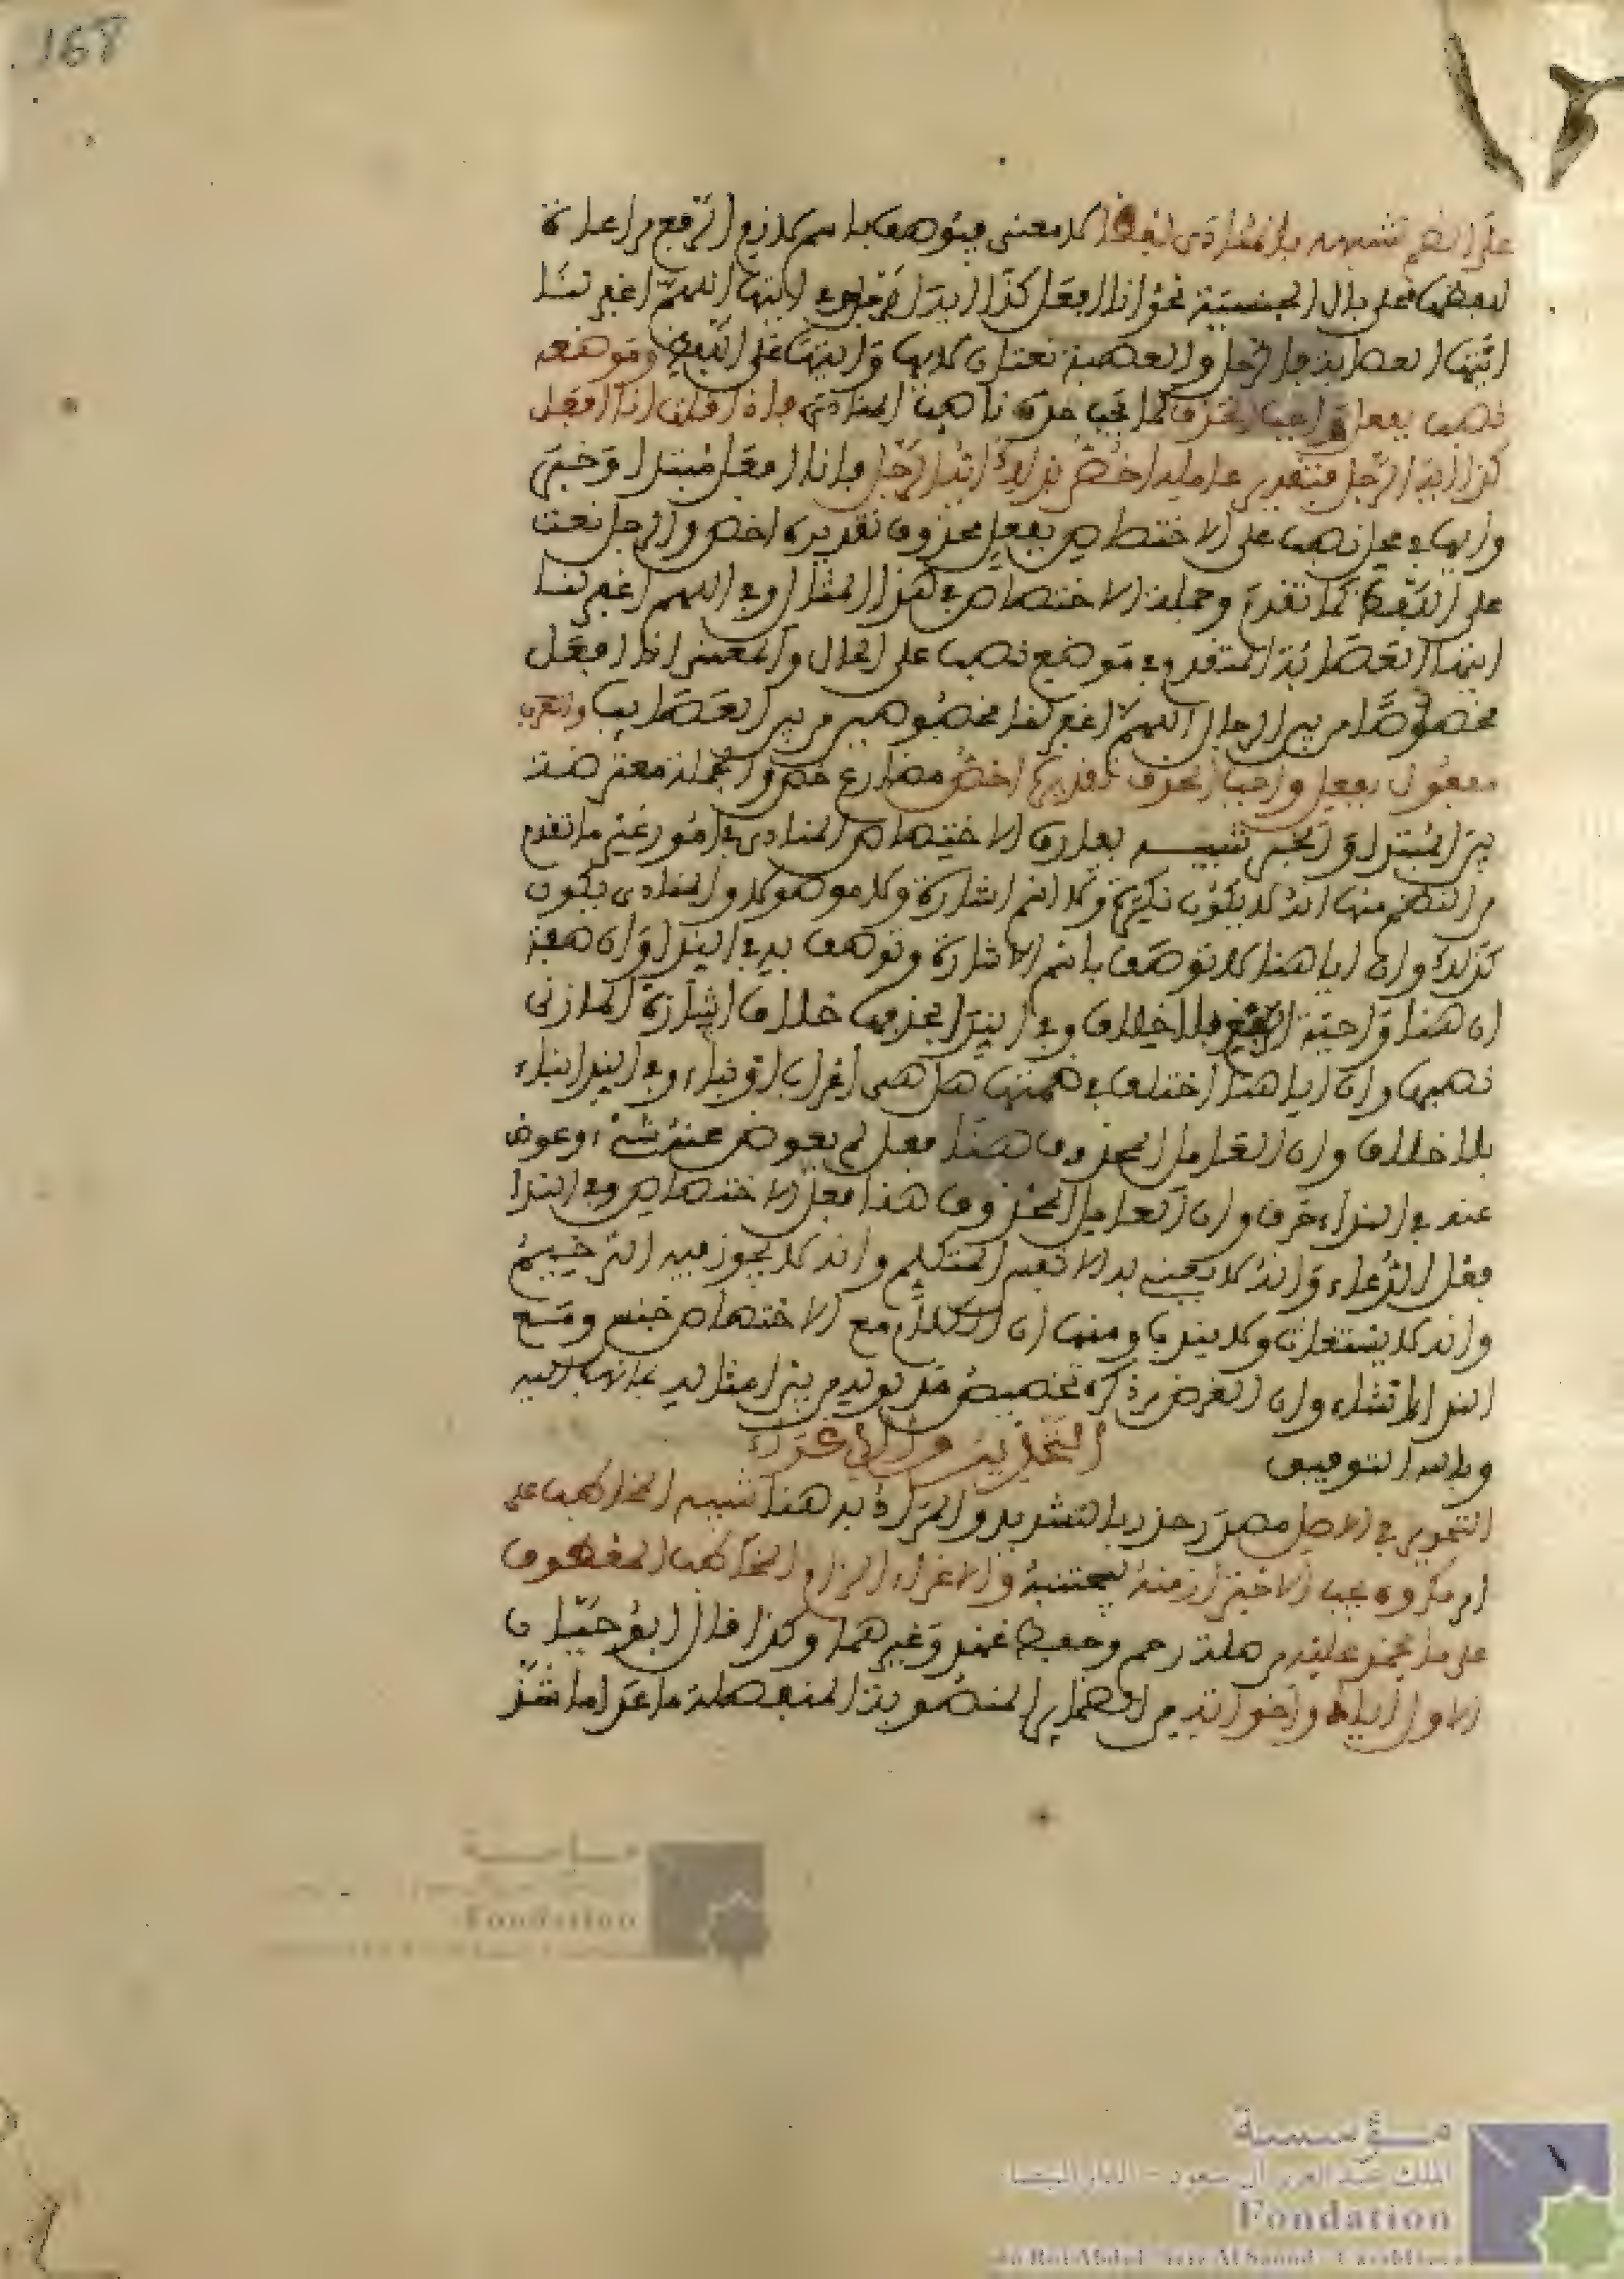 168
على الضم تشبيها بالمنادى لفظا لا معنى فيوصف باسم لازم الرفع مراعاة
للفظها محلى بال الجنسية نحو انا افعل كذا ايها الرجل و اللهم اغفر لنا
ايتها العصابة فالرجل والعصابة نعتان لايها وايتها على اللفظ وموضعه
نصب بفعل واجب الحذف كما يجب حذف ناصب المنادى فاذا قلت انا افعل
كذا ايها الرجل فتقدير عامله اخص بذلك ايها الرجل فانا افعل مبتدا وخبر
وايها في محل نصب على الاختصاص بفعل محذوف تقديره اخص والرجل نعت
على اللفظ كما تقدم وجملة الاختصاص في هذا المثال وفي اللهم اغفر لنا
ايتها العصابة المتقدم في موضع نصب على الحال والمعنى انا افعل
مخصوصا من بين الرجال اللهم اغفر لنا مخصوصين من بين العصايب
مفعول بفعل واجب الحذف تقديره اخص مضارع خص والجملة معترضة
بين المبتدا والخبر تنبيه يفارق الاختصاص المنادى في امور غير ما تقدم
من النظم منها انه لا يكون نكرة ولا اسم اشارة ولا موصولا والمنادى يكون
كذلك وان ايا هنا لا توصف باسم الاشارة وتوصف به في الندا وان صفة
اي هنا واجبة الرفع بلا خلاف وفي الندا خلاف اجاز المازني
نصبها وان ايا هنا اختلف في ضمتها هل هي اعراب او بناء وفي الندا بناء
بلا خلاف وان العامل المحذوف هنا فعل لم يعوض عنه شيء وعوض
عنه في النداء حرف وان العامل المحذوف هنا فعل الاختصاص وفي الندا
فعل الدعاء وانه لا يعنى به الا نفس المتكلم وانه لا يجوز فيه الترخيم
وانه لا يستغاث ولا يندب ومنها ان الكلام مع الاختصاص خبر ومع
الندا انشاء وان الغرض من ذكره تخصيص مدلوله من بين امثاله بما نسب اليه
وبالله التوفيق
التحذير والاغراء
التحذير في الاصل مصدر حذر بالتشديد والمراد به هنا تنبيه المخاطب على
امر مكروه يجب الاحتراز منه ليجتنبه والاغراء الزام المخاطب العكوف
على ما يحمد عليه من صلة رحم وحفظ عهد وغيرهما وكذا قال ابو حيان
الاول اياك واخواته من الضماير المنصوبة المنفصلة ما عدا ما شذ
مؤسسة
الملك عبد العزيز آل سعود - الدار البيضاء
Fondation
du Roi Abdul-Aziz Al Saoud - Casablanca
Fondation